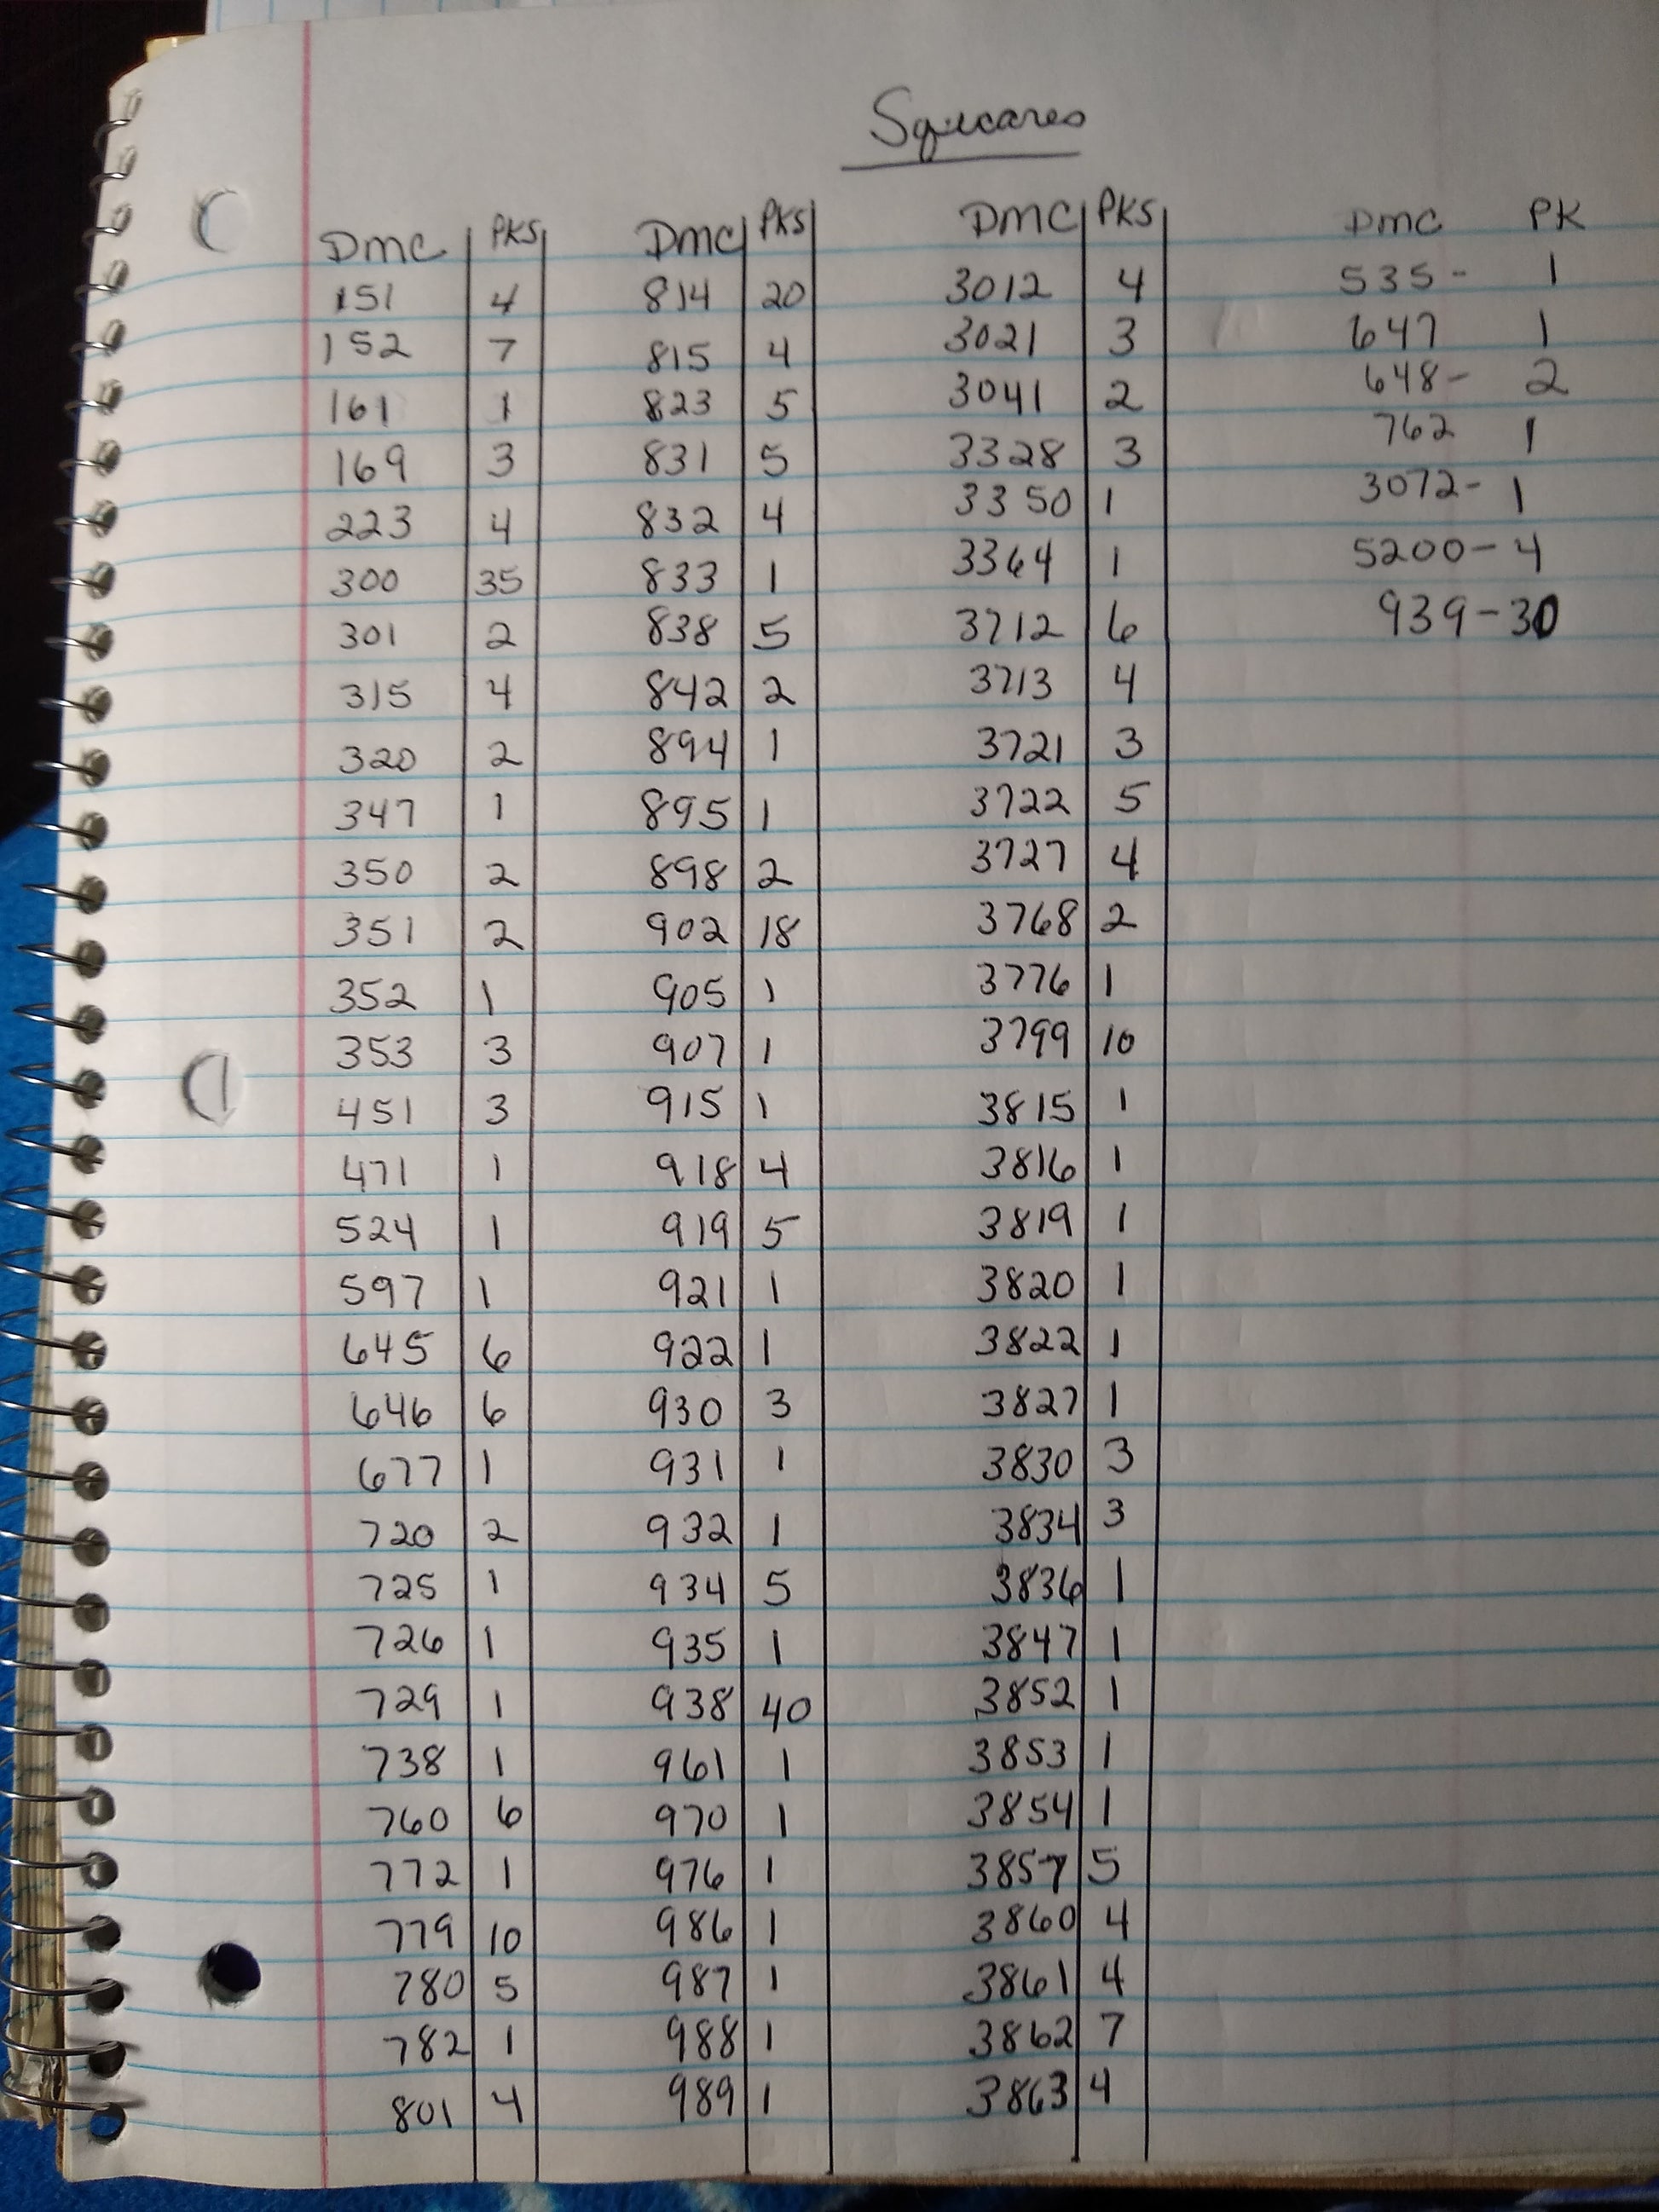 Squares
DMC PKS DMC PKS DMC PKS DMC PK
151 4 814 20 3012 4 535- 1
152 7 815 4 3021 3 647 1
161 1 823 5 3041 2 648- 2
169 3 831 5 3328 3 762 1
223 4 832 4 3350 1 3072- 1
300 35 833 1 3364 1 5200- 4
301 2 838 5 3712 6 939-30
315 4 842 2 3713 4
320 2 894 1 3721 3
347 1 895 1 3722 5
350 2 898 2 3727 4
351 2 902 18 3768 2
352 1 905 1 3776 1
353 3 907 1 3799 10
451 3 915 1 3815 1
471 1 918 4 3816 1
524 1 919 5 3819 1
597 1 921 1 3820 1
645 6 922 1 3822 1
646 6 930 3 3827 1
677 1 931 1 3830 3
720 2 932 1 3834 3
725 1 934 5 3836 1
726 1 935 1 3847 1
729 1 938 40 3852 1
738 1 961 1 3853 1
760 6 970 1 3854 1
772 1 976 1 3857 5
779 10 986 1 3860 4
780 5 987 1 3861 4
782 1 988 1 3862 7
801 4 989 1 3863 4